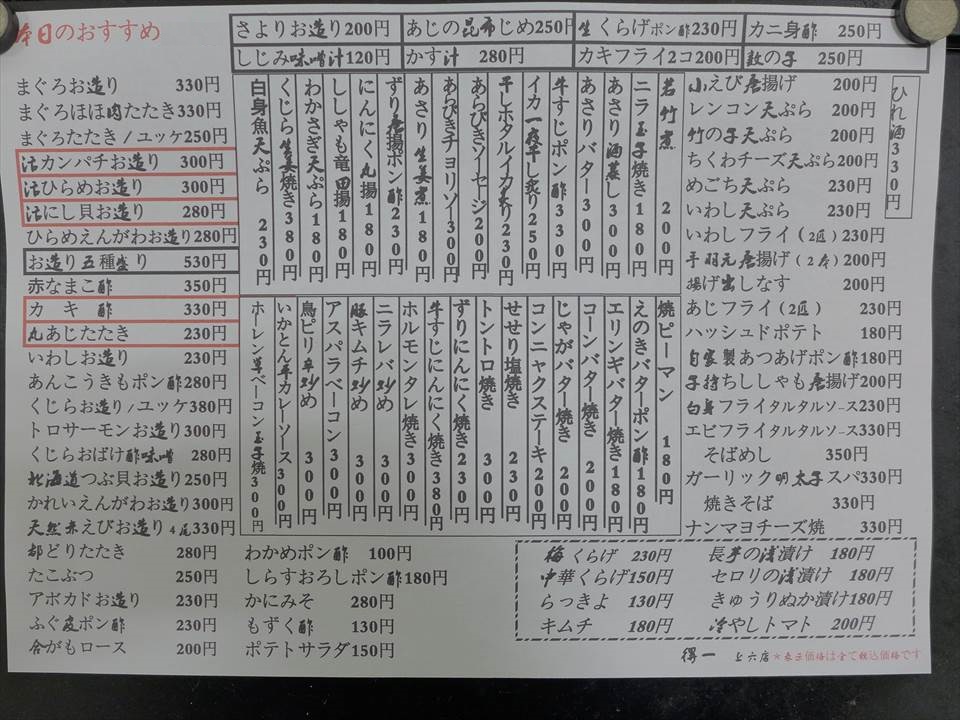 本日のおすすめ
さよりお造り200円
あじの昆布じめ250円
生くらげポン酢230円
カニ身酢 250円
しじみ味噌汁120円
かす汁 280円
カキフライ2コ200円
数の子 250円
まぐろお造り 330円
まぐろほほ肉たたき330円
まぐろたたき/ユッケ250円
活カンパチお造り 300円
活ひらめお造り 300円
活にし貝お造り 280円
ひらめえんがわお造り280円
お造り五種盛り 530円
赤なまこ酢 350円
カキ酢 330円
丸あじたたき 230円
いわしお造り 230円
あんこうきもポン酢280円
くじらお造り/ユッケ380円
トロサーモンお造り300円
くじらおばけ酢味噌 280円
北海道つぶ貝お造り250円
かれいえんがわお造り300円
天然赤えびお造り4尾330円
都どりたたき 280円
たこぶつ 250円
アボカドお造り 230円
ふぐ皮ポン酢 230円
合がもロース 200円
若竹煮 200円
ニラ玉子焼き180円
あさり酒蒸し300円
あさりバター300円
牛すじポン酢330円
イカ一夜干し炙り250円
干しホタルイカ炙り230円
あらびきソーセージ200円
あらびきチョリソー300円
あさり生姜煮180円
ずり唐揚ポン酢230円
にんにく丸揚180円
ししゃも竜田揚180円
わかさぎ天ぷら180円
くじら生姜焼き380円
白身魚天ぷら 230円
焼ピーマン 180円
えのきバターポン酢180円
エリンギバター焼き180円
コーンバター焼き 200円
じゃがバター焼き 200円
コンニャクステーキ200円
せせり塩焼き 230円
トントロ焼き 300円
ずりにんにく焼き230円
牛すじにんにく焼き380円
ホルモンタレ焼き300円
ニラレバ炒め 300円
豚キムチ炒め 300円
アスパラベーコン300円
鳥ピリ辛炒め 300円
いかとん平カレーソース300円
ホーレン草ベーコン玉子焼300円
わかめポン酢 100円
しらすおろしポン酢180円
かにみそ 280円
もずく酢 130円
ポテトサラダ150円
ひれ酒330円
小えび唐揚げ 200円
レンコン天ぷら 200円
竹の子天ぷら 200円
ちくわチーズ天ぷら200円
めごち天ぷら 230円
いわし天ぷら 230円
いわしフライ(2匹)230円
手羽元唐揚げ(2本)200円
揚げ出しなす 200円
あじフライ(2匹) 230円
ハッシュドポテト 180円
自家製あつあげポン酢180円
子持ちししゃも唐揚げ200円
白身フライタルタルソース230円
エビフライタルタルソース330円
そばめし 350円
ガーリック明太子スパ330円
焼きそば 330円
ナンマヨチーズ焼 330円
梅くらげ 230円
中華くらげ150円
らっきよ 130円
キムチ 180円
長芋の浅漬け 180円
セロリの浅漬け 180円
きゅうりぬか漬け180円
冷やしトマト 200円
得一 上六店 ★表示価格は全て税込価格です